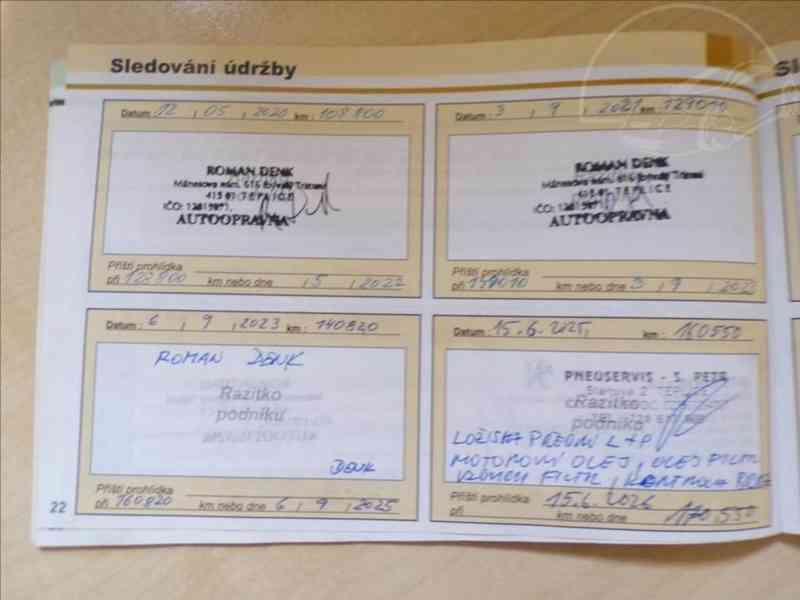 Sledování údržby
Datum 12 , 05 , 2020 km : 108 800
ROMAN DENK
Mánesova nám. 616 (bývalý Tratex)
415 01 TEPLICE
IČO:
AUTOOPRAVNA
Příští prohlídka
při 123800 km nebo dne , 5 , 2022
Datum : 3 , 9 , 2021 km 129010
ROMAN DENK
Mánesova nám. 616 (bývalý Tratex)
415 01 TEPLICE
IČO:
AUTOOPRAVNA
Příští prohlídka
při km nebo dne 3 , 9 , 2023
Datum : 6 , 9 , 2023 km : 140820
ROMAN DENK
Razítko
podniku
DENK
Příští prohlídka
při 160820 km nebo dne 6 , 9 , 2025
Datum : 15.6.2025, km : 160550
PNEUSERVIS - S. PETR
Razítko
podniku
LOŽISKA PŘEDNÍ L+P
MOTOROVÝ OLEJ, OLEJ FILTR
VZDUCH FILTR, KONTROLA
Příští prohlídka 15.6.2026
při km nebo dne 170.550
22